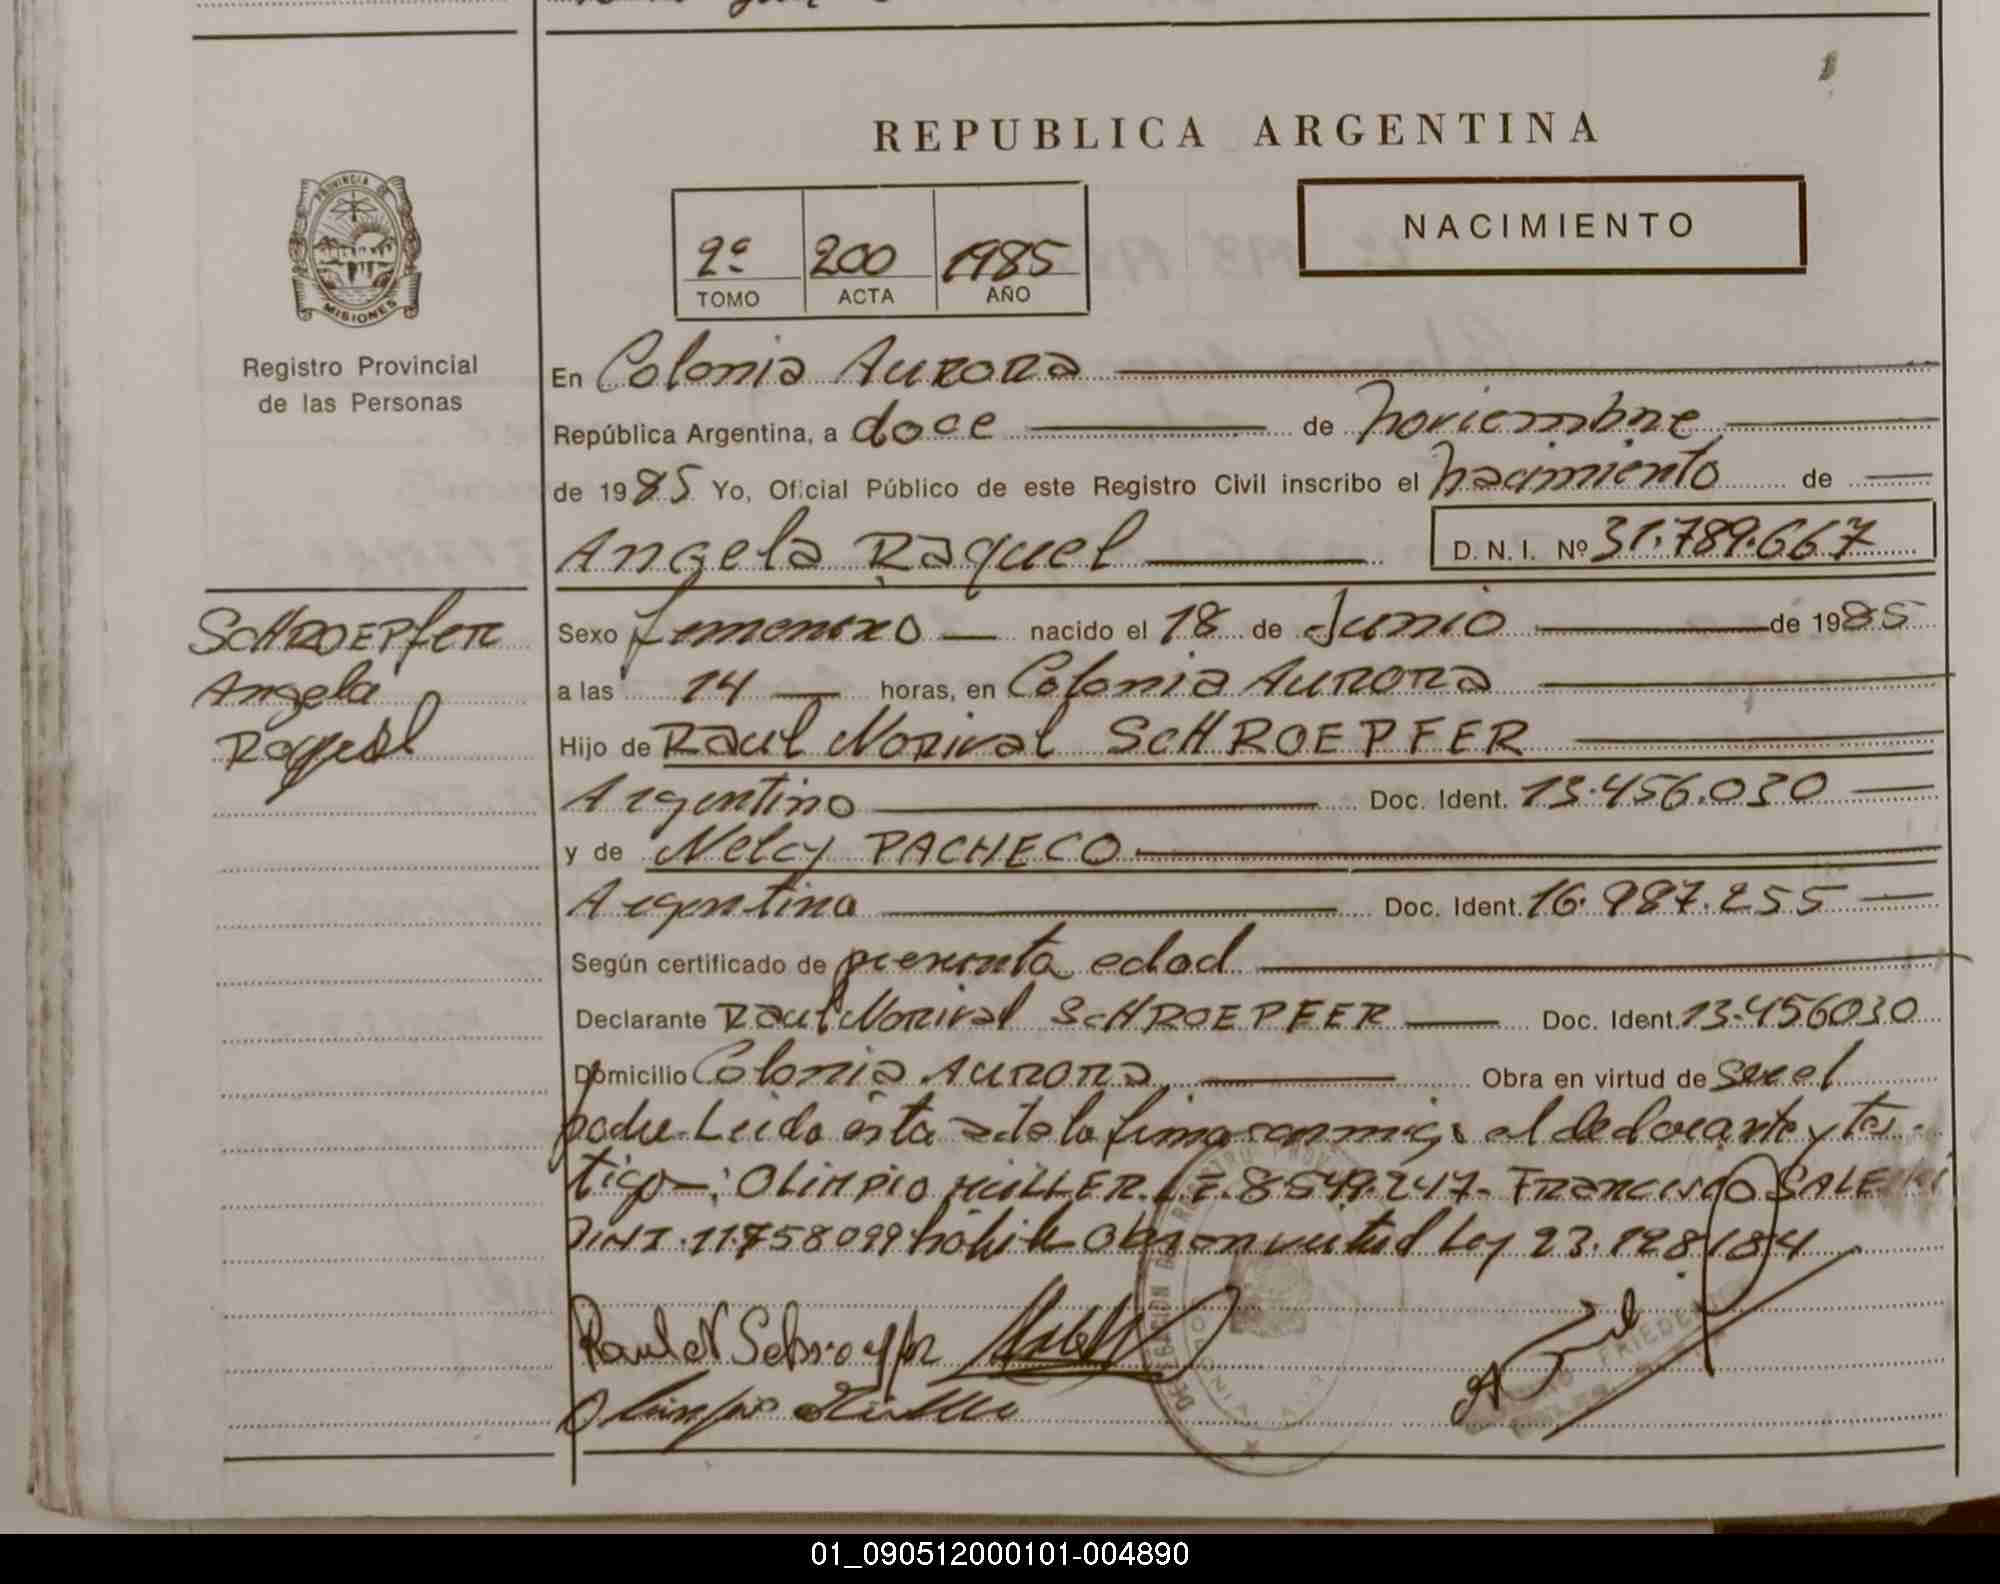 REPUBLICA ARGENTINA
NACIMIENTO
2º 200 1985
TOMO ACTA AÑO
PROVINCIA DE
MISIONES
Registro Provincial
de las Personas
En Colonia Aurora
República Argentina, a doce de noviembre
de 1985 Yo, Oficial Público de este Registro Civil inscribo el nacimiento de
Angela Raquel D. N. I. Nº 31.789.667
SCHROEPfER
Angela
Raquel
Sexo femenino nacido el 18 de Junio de 1985
a las 14 horas, en Colonia Aurora
Hijo de Raul Norival SCHROEPFER
Argentino Doc. Ident. 13.456.030
y de Nelcy PACHECO
Argentina Doc. Ident. 16.987.255
Según certificado de presunta edad
Declarante Raul Norival SCHROEPFER Doc. Ident. 13.456030
Domicilio Colonia Aurora Obra en virtud de ser el
padre. Leida esta acta la firma conmigo el declarante y tes-
tigo: OLIMPIO MÜLLER L.E. 8549.247- FRANCISCO
DNI. 11.758099 habile Obra en virtud Ley 23.128/84
Raul N Schroepfer
Olimpio Müller
DELEGACION DE REGISTRO PROV
01_090512000101-004890